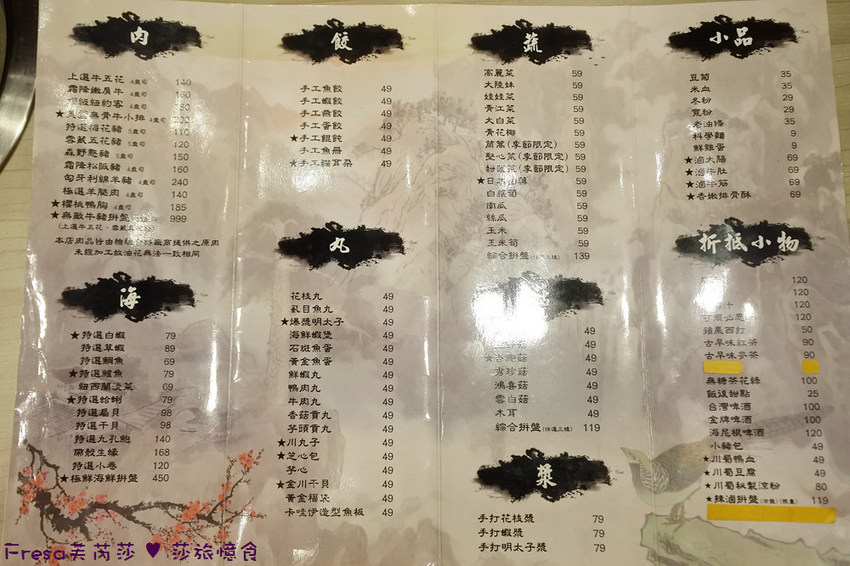 肉
上選牛五花 4盎司 140
霜降嫩肩牛 4盎司 160
頂級紐約客 4盎司
無骨牛小排 4盎司
特選梅花豬 5盎司 110
雪藏五花豬 5盎司 120
森野憨豬 5盎司 150
霜降松阪豬 4盎司 160
匈牙利綿羊豬 4盎司 240
極選羊腿肉 4盎司 140
★櫻桃鴨胸 4盎司 185
★無敵牛豬拼盤 999
(上選牛五花、雪藏五花豬)
本店肉品皆由檢驗合格廠商提供之原肉
未經加工飲油花與湯一致相同
海
★特選白蝦 79
特選草蝦 89
特選鯛魚 69
★特選鱸魚 79
紐西蘭淡菜 69
★特選蛤蜊 79
特選扇貝 98
特選干貝 98
特選九孔鮑 140
帶殼生蠔 168
特選小卷 120
★極鮮海鮮拼盤 450
餃
手工魚餃 49
手工蝦餃 49
手工燕餃 49
手工蛋餃 49
★手工餛飩 49
手工魚冊 49
★手工貓耳朵 49
丸
花枝丸 49
虱目魚丸 49
★爆漿明太子 49
海鮮蝦堡 49
石斑魚蛋 49
黃金魚蛋 49
鮮蝦丸 49
鴨肉丸 49
牛肉丸 49
香菇貢丸 49
芋頭貢丸 49
★川丸子 49
★芝心包 49
芋心 49
★金川干貝 49
黃金福袋 49
卡哇伊造型魚板 49
蔬
高麗菜 59
大陸妹 59
娃娃菜 59
青江菜 59
大白菜 59
青花椰 59
茼蒿(季節限定) 59
塱心菜(季節限定) 59
(季節限定) 59
59
白蘿蔔 59
南瓜 59
絲瓜 59
玉米 59
玉米筍 59
綜合拼盤 139
菇 49
49
★杏鮑菇 49
秀珍菇 49
鴻喜菇 49
雪白菇 49
木耳 49
綜合拼盤(任選三樣) 119
漿
手打花枝漿 79
手打蝦漿 79
手打明太子漿 79
小品
豆苗 35
米血 35
冬粉 29
寬粉 29
老油條 35
科學麵 9
鮮雞蛋 9
★滷大腸 69
★滷牛肚 69
★滷牛筋 69
★香嫩排骨酥 69
折抵小物
120
120
120
120
蘋果西打 50
古早味紅茶 90
古早味麥茶 90
無糖茶花綠 100
飯後甜點 25
台灣啤酒 100
金牌啤酒 100
海尼根啤酒 120
小豬包 49
★川蜀鴨血 49
★川蜀豆腐 49
★川蜀秘製涼粉 80
★辣滷拼盤 119
Fresa芙芮莎 ♥ 莎旅憶食